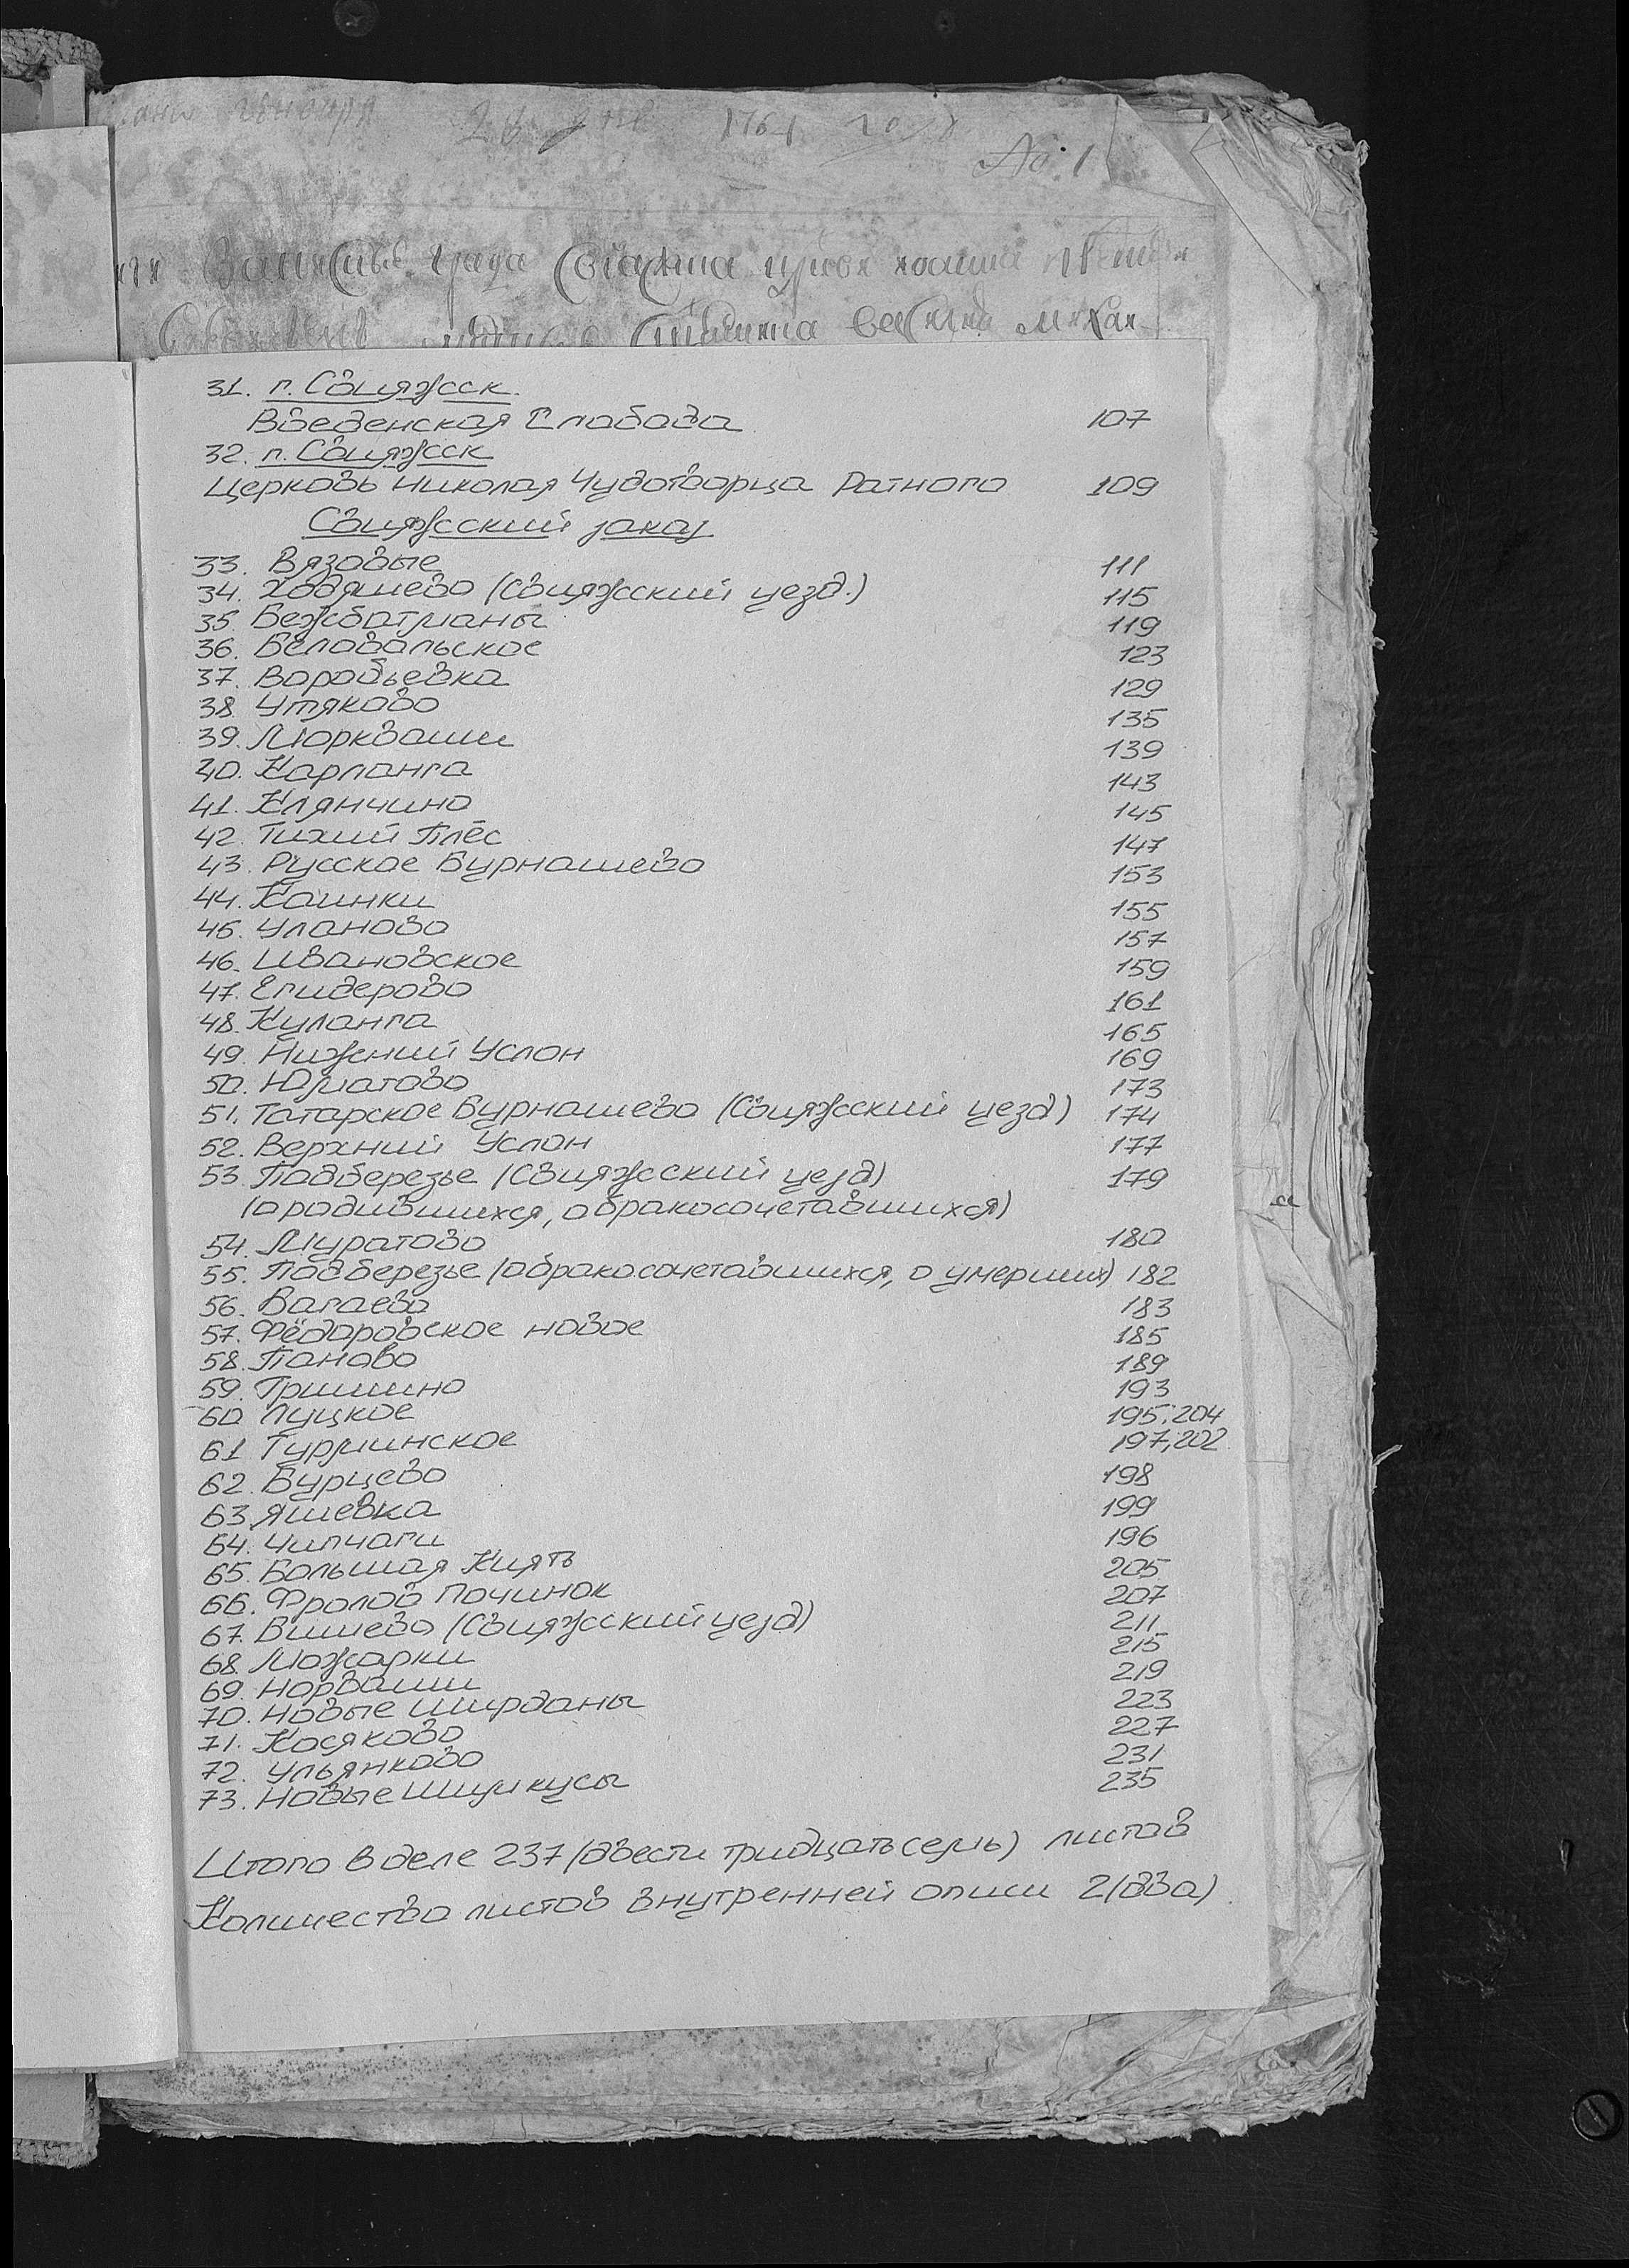 1764
№ 1
31. г. Свияжск.
Введенская Слобода 107
32. г. Свияжск
Церковь Николая Чудотворца Ратного 109
Свияжский заказ
33. Вязовые 111
34. Ходяшево (Свияжский уезд.) 115
35 Бежбатманы 119
36. Беловольское 123
37. Воробьевка 129
38 Утяково 135
39. Моркваши 139
40. Карланга 143
41. Клянчино 145
42. Тихий Плёс 147
43. Русское Бурнашево 153
44. Каинки 155
45. Уланово 157
46. Ивановское 159
47. Егидерово 161
48. Куланга 165
49. Нижний Услон 169
50. Юматово 173
51. Татарское Бурнашево (Свияжский уезд) 174
52. Верхний Услон 177
53. Подберезье (Свияжский уезд) 179
(о родившихся, о бракосочетавшихся)
54. Муратово 180
55. Подберезье (о бракосочетавшихся, о умерших) 182
56. Вагаево 183
57. Фёдоровское новое 185
58. Паново 189
59. Гришино 193
60 Луцкое 195, 204
61 Турминское 197, 202
62. Бурцево 198
63. Яшевка 199
64. Чипчаги 196
65. Большая Киять 205
66. Фролов Починок 207
67. Вишево (Свияжский уезд) 211
68. Можарки 215
69. Норваши 219
70. Новые Ширданы 223
71. Косяково 227
72. Ульянково 231
73. Новые Шимкусы 235
Итого в деле 237 (двести тридцать семь) листов
Количество листов внутренней описи 2 (два)